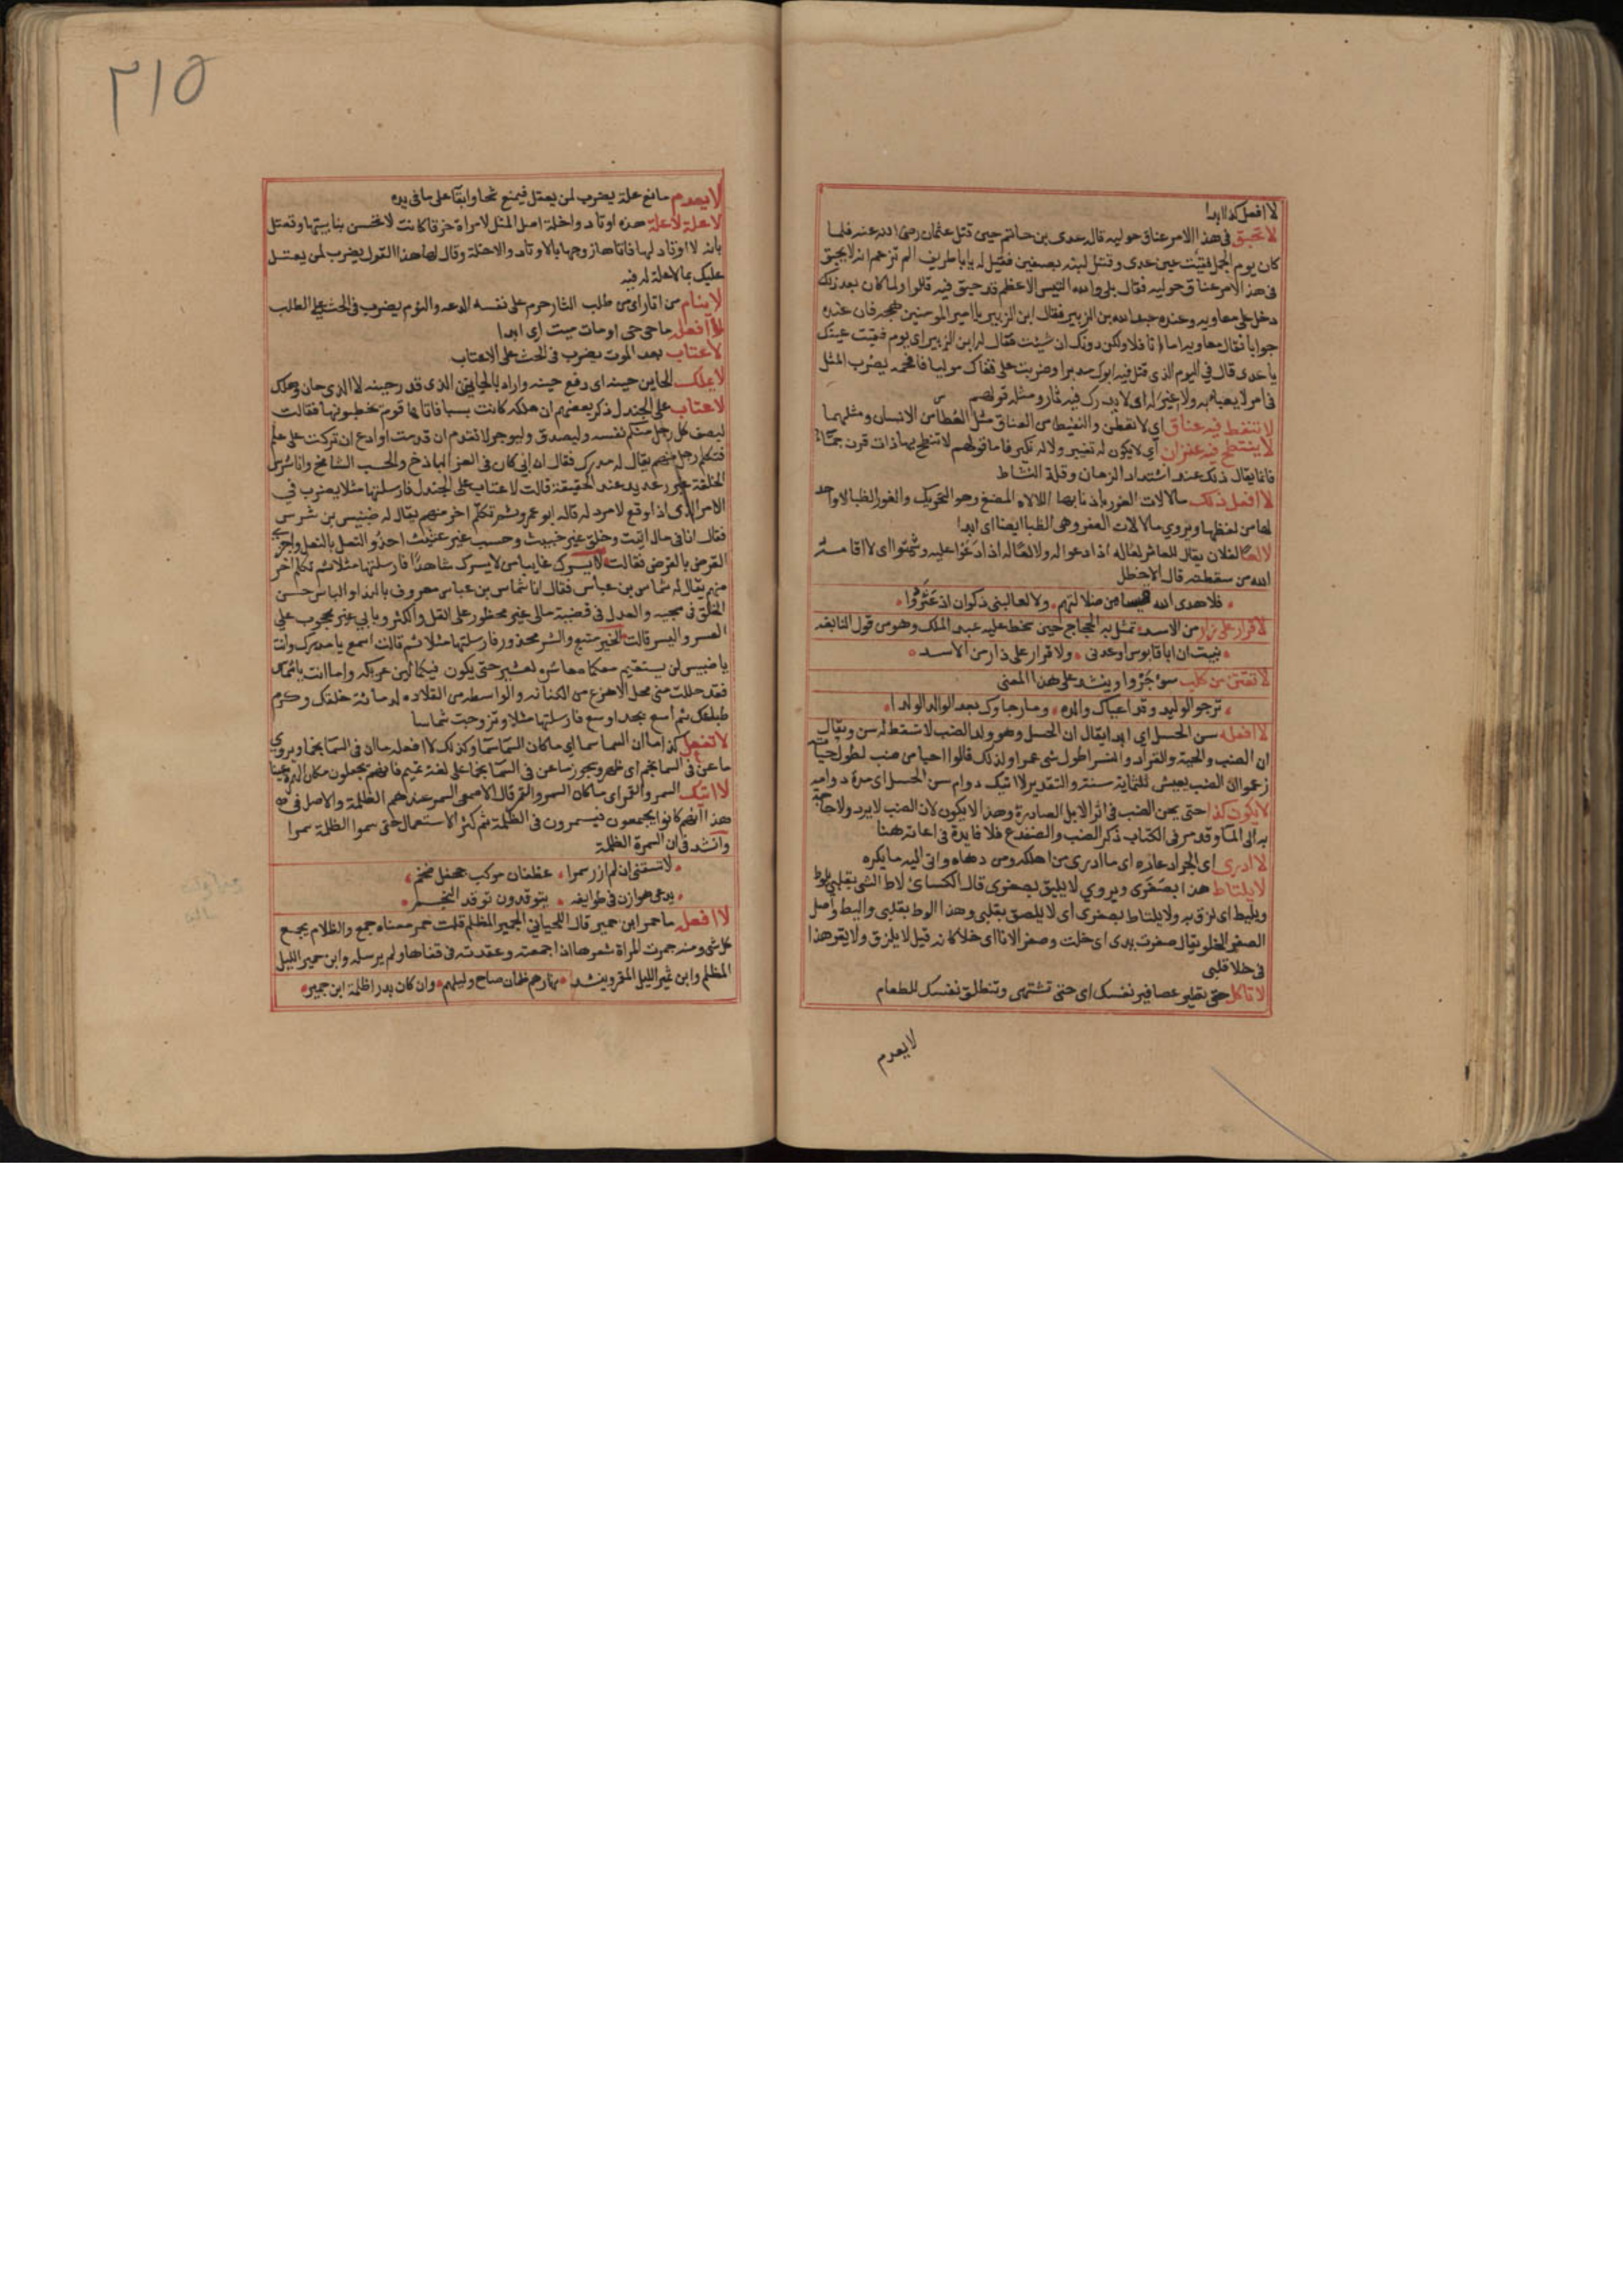 لا افعل كذا ابدا
لا تحبق فى هذا الامر عناق حوليه قاله عدى بن حاتم حين قتل عثمان رضى الله عنه فلما
كان يوم الجمل فقيت عين عدى وقتل ابنه بصفين فقيل له يابا طريف الم تزعم انه لا يحبق
فى هذا الامر عناق حوليه فقال بلى والله التيس الاعظم قد حبق فيه قالوا ولما كان بعد ذلك
دخل على معاويه وعنده عبد الله بن الزبير فقال ابن الزبير يا امير المومنين هجه فان عنده
جوابا فقال معاويه اما انا فلا ولكن دونك ان شيت فقال له ابن الزبير اى يوم فقيت عينك
يا عدى قال فى اليوم الذى قتل فيه ابوك مدبرا وضربت على قفاك موليا فافحمه يضرب المثل
فى امر لا يعبا به ولا غير له اى لا يدرك فيه ثار ومثله قولهم
لا تنفط فيه عناق اى لا تعطس والنفيط من العناق مثل العطاس من الانسان ومثلهما
لا ينتطح فيه عنزان اى لا يكون له تغيير ولا له نكير فاما قولهم لا تنطح بها ذات قرن جما
فانما يقال ذلك عند اشتداد الزمان وقلة النشاط
لا افعل ذلك ما لالات الفور باذنابها اللالاه المصع وهو التحريك والفور الظبا لا واحد
لها من لفظها ويروى ما لالات العفر وهى الظبا ايضا اى ابدا
لا لعا لفلان يقال للعاثر لعا له اذا دعوا له ولا لعا له اذا دعوا عليه وشمتوا اى لا اقامه
الله من سقطته قال الاخطل
فلا هدى الله قيسا من ضلالتهم ولا لعا لبنى ذكوان اذ عثروا
لا قرار على زار من الاسد تمثل به الحجاج حين سخط عليه عبد الملك وهو من قول النابغه
نبيت ان ابا قابوس اوعدنى ولا قرار على زار من الاسد
لا تقتن من كلب سوء جروا وينشد على هذا المعنى
ترجو الوليد وقد اعياك والده وما رجاوك بعد الوالد الولدا
لا افعله سن الحسل اى ابدا يقال ان الحسل وهو ولد الضب لا تسقط له سن ويقال
ان الضب والحية والقراد والنسر اطول شى عمرا ولذلك قالوا احيا من ضب لطول حياته
زعموا ان الضب يعيش ثلثماية سنة والتقدير لا اتيك دوام سن الحسل اى مدة دوامه
لا يكون كذا حتى يحن الضب فى اثر الابل الصادرة وهذا لا يكون لان الضب لا يرد ولا حاجة
به الى الما وقد مر فى الكتاب ذكر الضب والضفدع فلا فايدة فى اعادته هنا
لا ادرى اى الجراد عاره اى ما ادرى من اهلكه ومن دهاه واتى اليه ما يكره
لا يلتاط هذا بصفرى ويروى لا يليق بصفرى قال الكساى لاط الشى بقلبى يلوط
ويليط اى لزق به ولا يلتاط بصفرى اى لا يلصق بقلبى وهذا الوط بقلبى واليط واصل
الصفر الخلو يقال صفرت يدى اى خلت وصفر الانا اى خلا كانه قيل لا يلزق ولا يقر هذا
فى خلا قلبى
لا تاكل حتى تطير عصافير نفسك اى حتى تشتهى وتنطلق نفسك للطعام
لا يعدم
٢١٥
لا يعدم مانع علة يضرب لمن يعتل فيمنع شحا وابقا على ما فى يده
لا علة لا علة هذه اوتاد واخلة اصل المثل لامراة خرقا كانت لا تحسن بنا بيتها وتعتل
بانه لا اوتاد لها فاتاها زوجها بالاوتاد والاخلة وقال لها هذا القول يضرب لمن يعتل
عليك بما لا علة له فيه
لا ينام من اثار اى من طلب الثار حرم على نفسه الدعه والنوم يضرب فى الحث على الطلب
لا افعله ما حى حى او مات ميت اى ابدا
لا عتاب بعد الموت يضرب فى الحث على الاعتاب
لا يملك الحاين حينه اى دفع حينه
لا عتاب على الجندل ذكر بعضهم ان ملكه كانت بسبا فاتاها قوم يخطبونها فقالت
ليصف كل رجل منكم نفسه وليصدق وليوجز لاتقدم ان تقدمت او ادع ان تركت على علم
فتكلم رجل منهم يقال له مدرك فقال ان ابى كان فى العز الباذخ والحسب الشامخ وانا شرس
الخليقة غير رعديد عند الحقيقة قالت لا عتاب على الجندل فارسلتها مثلا يضرب فى
الامر الذى اذا وقع لا مرد له قاله ابو عمرو ثم تكلم اخر منهم يقال له ضبيس بن شرس
فقال انا فى مال اثيث وخلق غير خبيث وحسب غير عثيث احذو النعل بالنعل واجزى
القرض بالقرض فقالت لا يسرك غايبا من لا يسرك شاهدا فارسلتها مثلا ثم تكلم اخر
منهم يقال له شماس بن عباس فقال انا شماس بن عباس معروف بالندا والباس حسن
الخلق فى سجيه والعدل فى قضيبة مالى غير محظور على القل والكثر وبابى غير محجوب على
العسر واليسر قالت الخير متبع والشر محذور فارسلتها مثلا ثم قالت اسمع يا مدرك وانت
يا ضبيس لن يستقيم معكما معاشرة لعشير حتى يكون فيكما لين عريكه واما انت يا شماس
فقد حللت منى محل الاهزع من الكنانه والواسطه من القلاده لدماثة خلقك وكرم
طباعك ثم اسع بجد او سع فارسلتها مثلا وتزوجت شماسا
لا تفعل كذا ما ان السما سما اى ما كان السما سما وكذلك لا افعله ما ان فى السما نجما ويروى
ما عن فى السما نجم اى ظهر ويجوز ما عن فى السما نجما على لغة تميم فانهم يجعلون مكان الهمزة عينا
لا اتيك السمر والقمر اى ما كان السمر والقمر قال الاصمعى السمر عندهم الظلمة والاصل فى
هذا انهم كانوا يجتمعون فيسمرون فى الظلمة ثم كثر الاستعمال حتى سموا الظلمة سمرا
وانشد فى ان السمرة الظلمة
لا تسقنى ان لم ازر سمرا غطفان موكب جحفل فخم
يدعى هوازن فى طوايفه يتوقدون توقد النجم
لا افعله ما جمر ابن جمير قال اللحيانى الجمير المظلم قلت جمر معناه جمع والظلام يجمع
كل شى ومنه جمرت المراة شعرها اذا جمعته وعقدته فى قفاها ولم يرسله وابن جمير الليل
المظلم وابن ثمير الليل المقمر وينشد نهارهم ظمان صاح وليلهم وان كان بدرا ظلمة ابن جمير